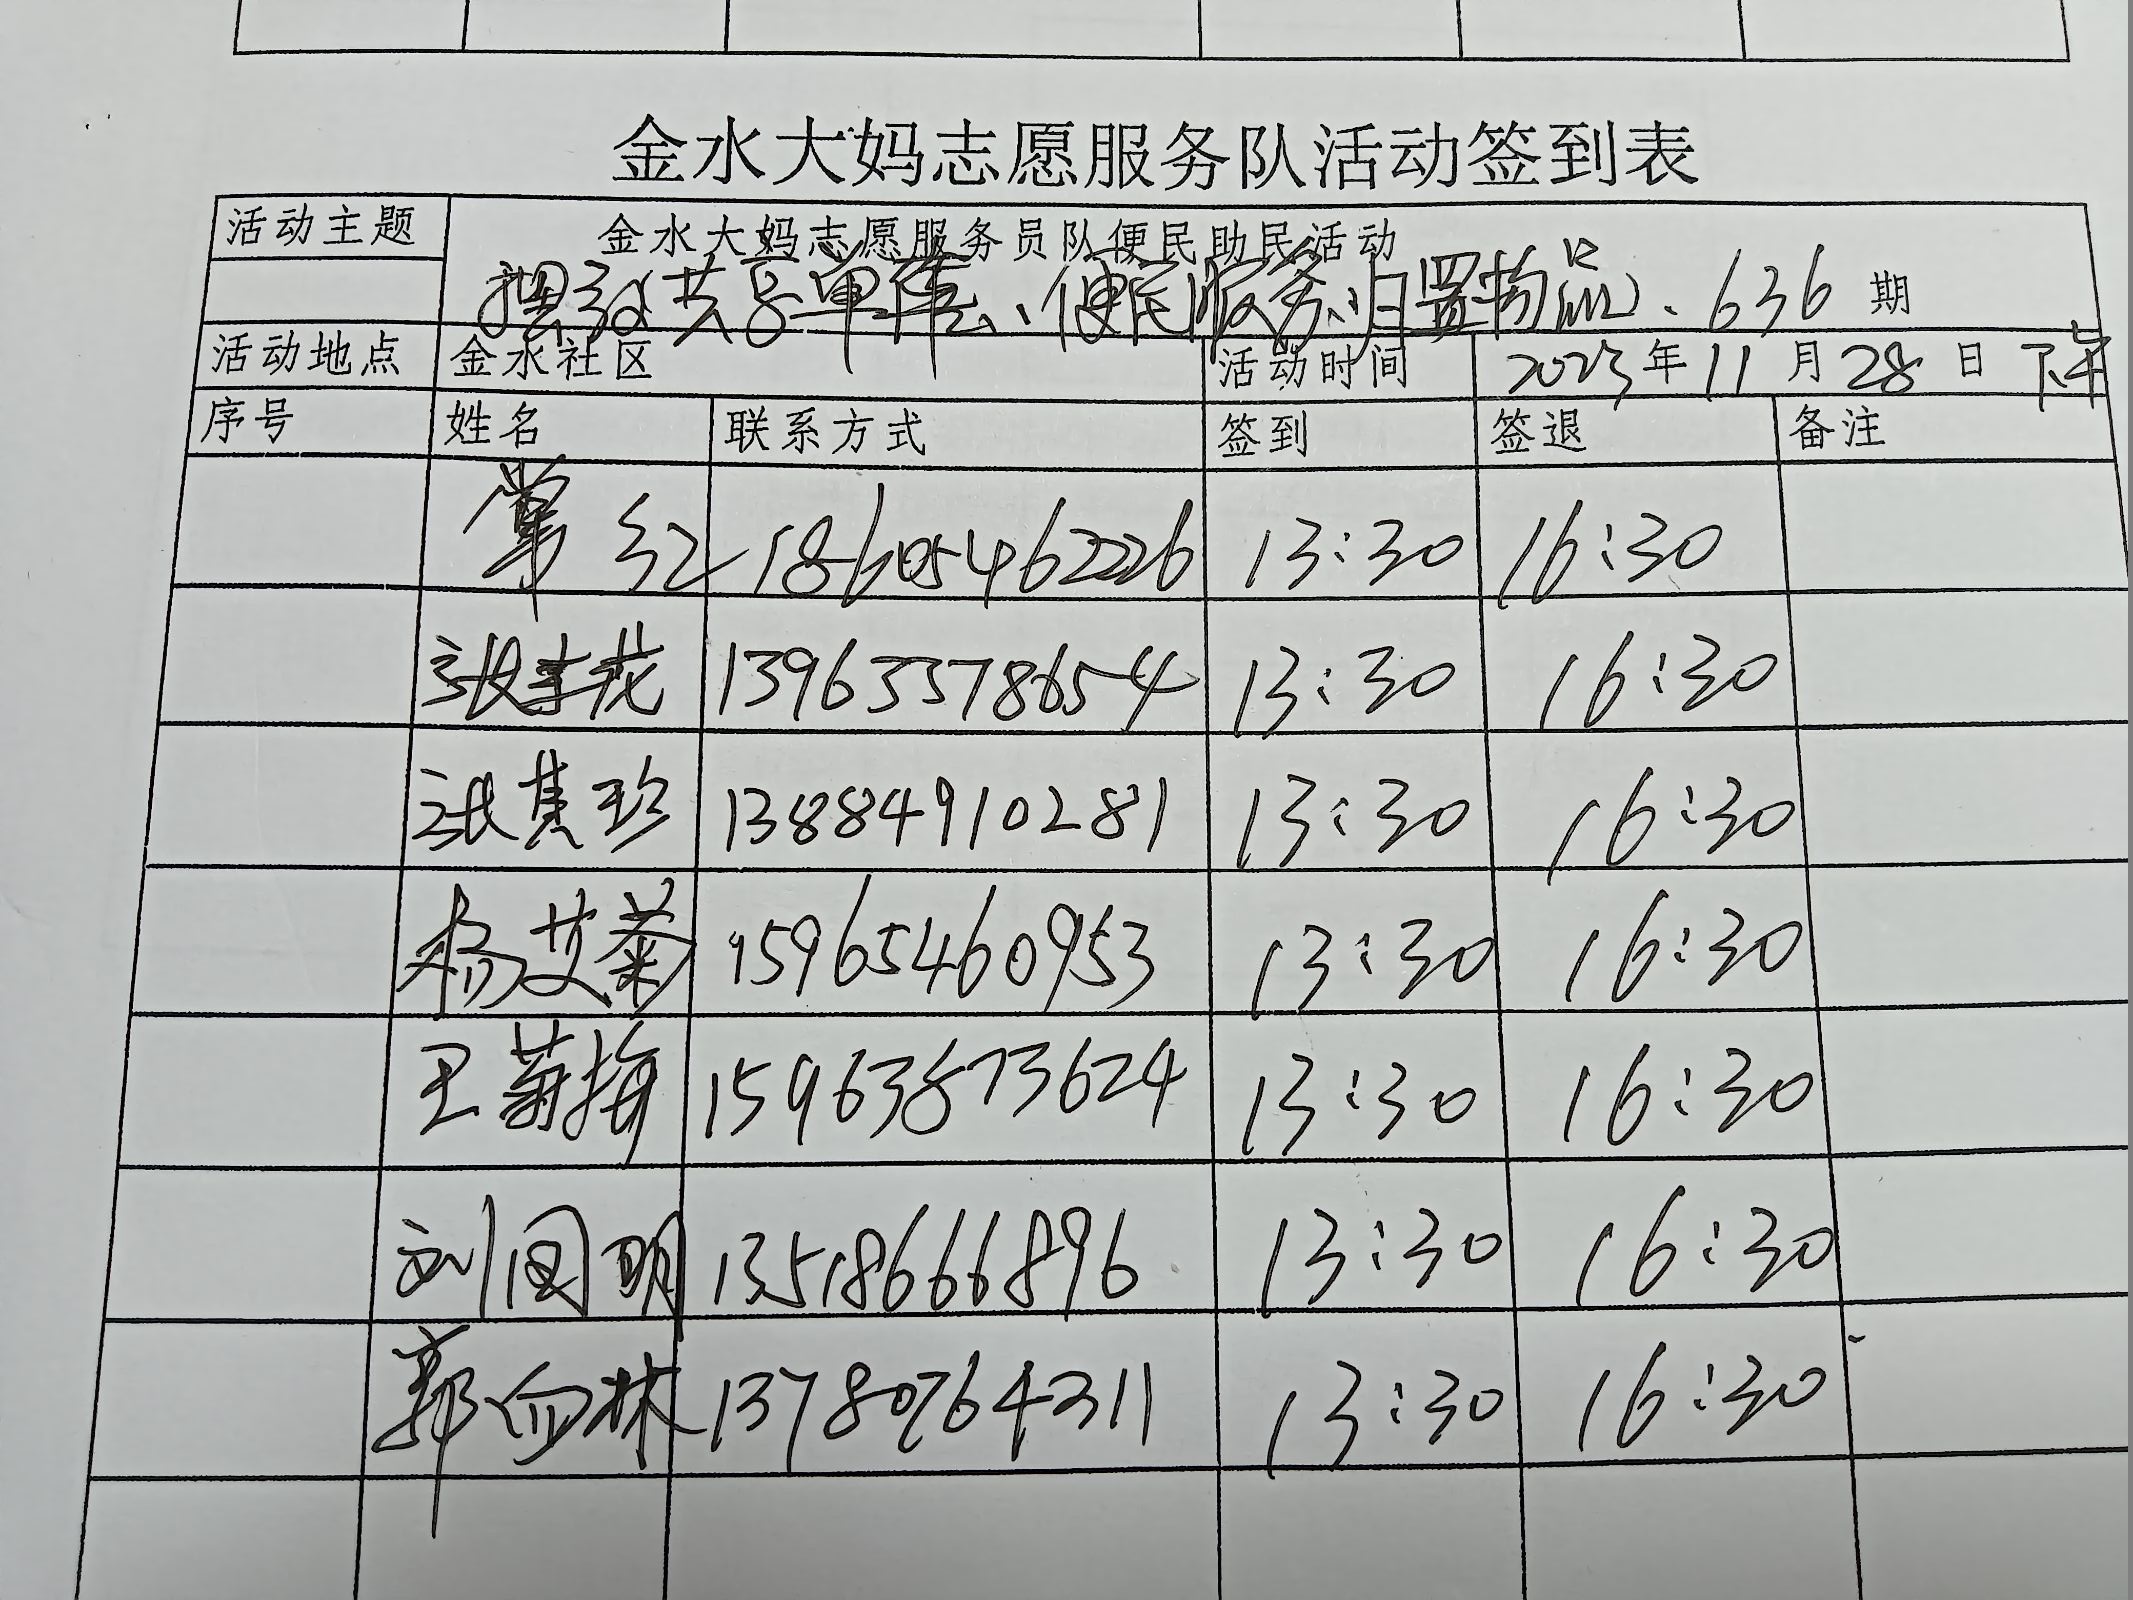 金水大妈志愿服务队活动签到表
活动主题 金水大妈志愿服务员队便民助民活动
摆放共享单车、便民服务、归置物品、636期
活动地点 金水社区 活动时间 2023年11月28日下午
序号 姓名 联系方式 签到 签退 备注
常红 18605462226 13:30 16:30
张 花 13963378654 13:30 16:30
张 珍 13884910281 13:30 16:30
杨艾菊 15965460953 13:30 16:30
王菊梅 15963873624 13:30 16:30
刘 明 13518666896 13:30 16:30
郭 林 13780764311 13:30 16:30